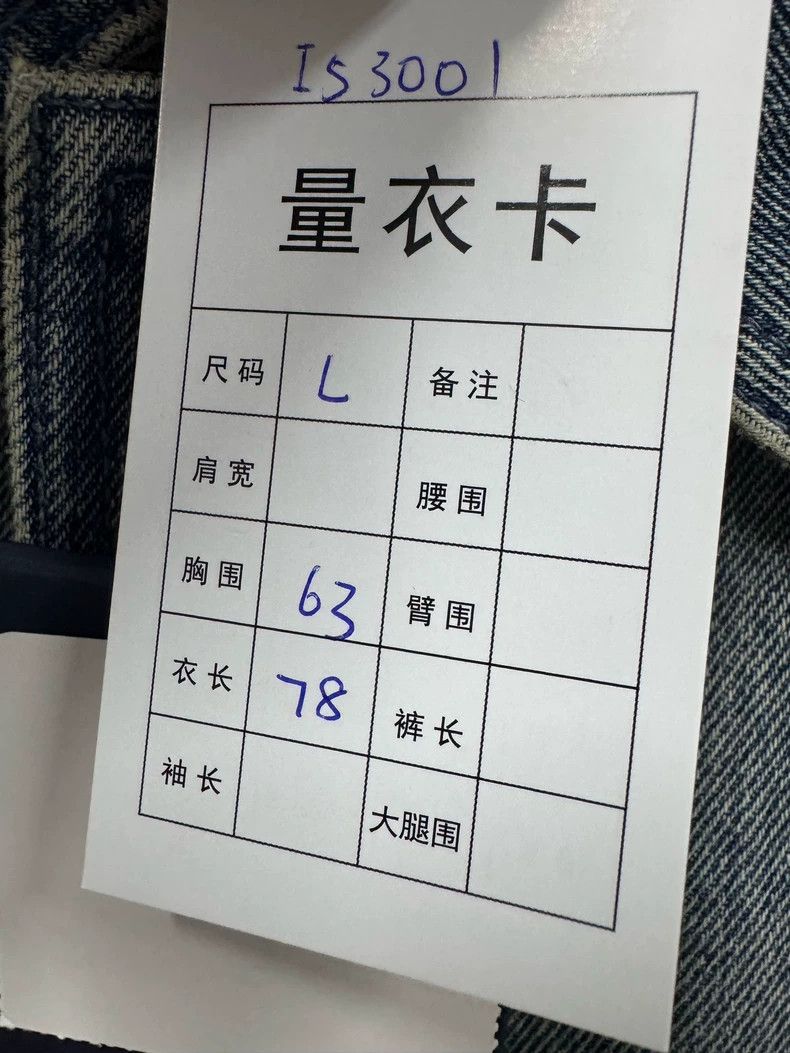 IS3001
量衣卡
尺码 L 备注
肩宽 腰围
胸围 63 臂围
衣长 78 裤长
袖长 大腿围